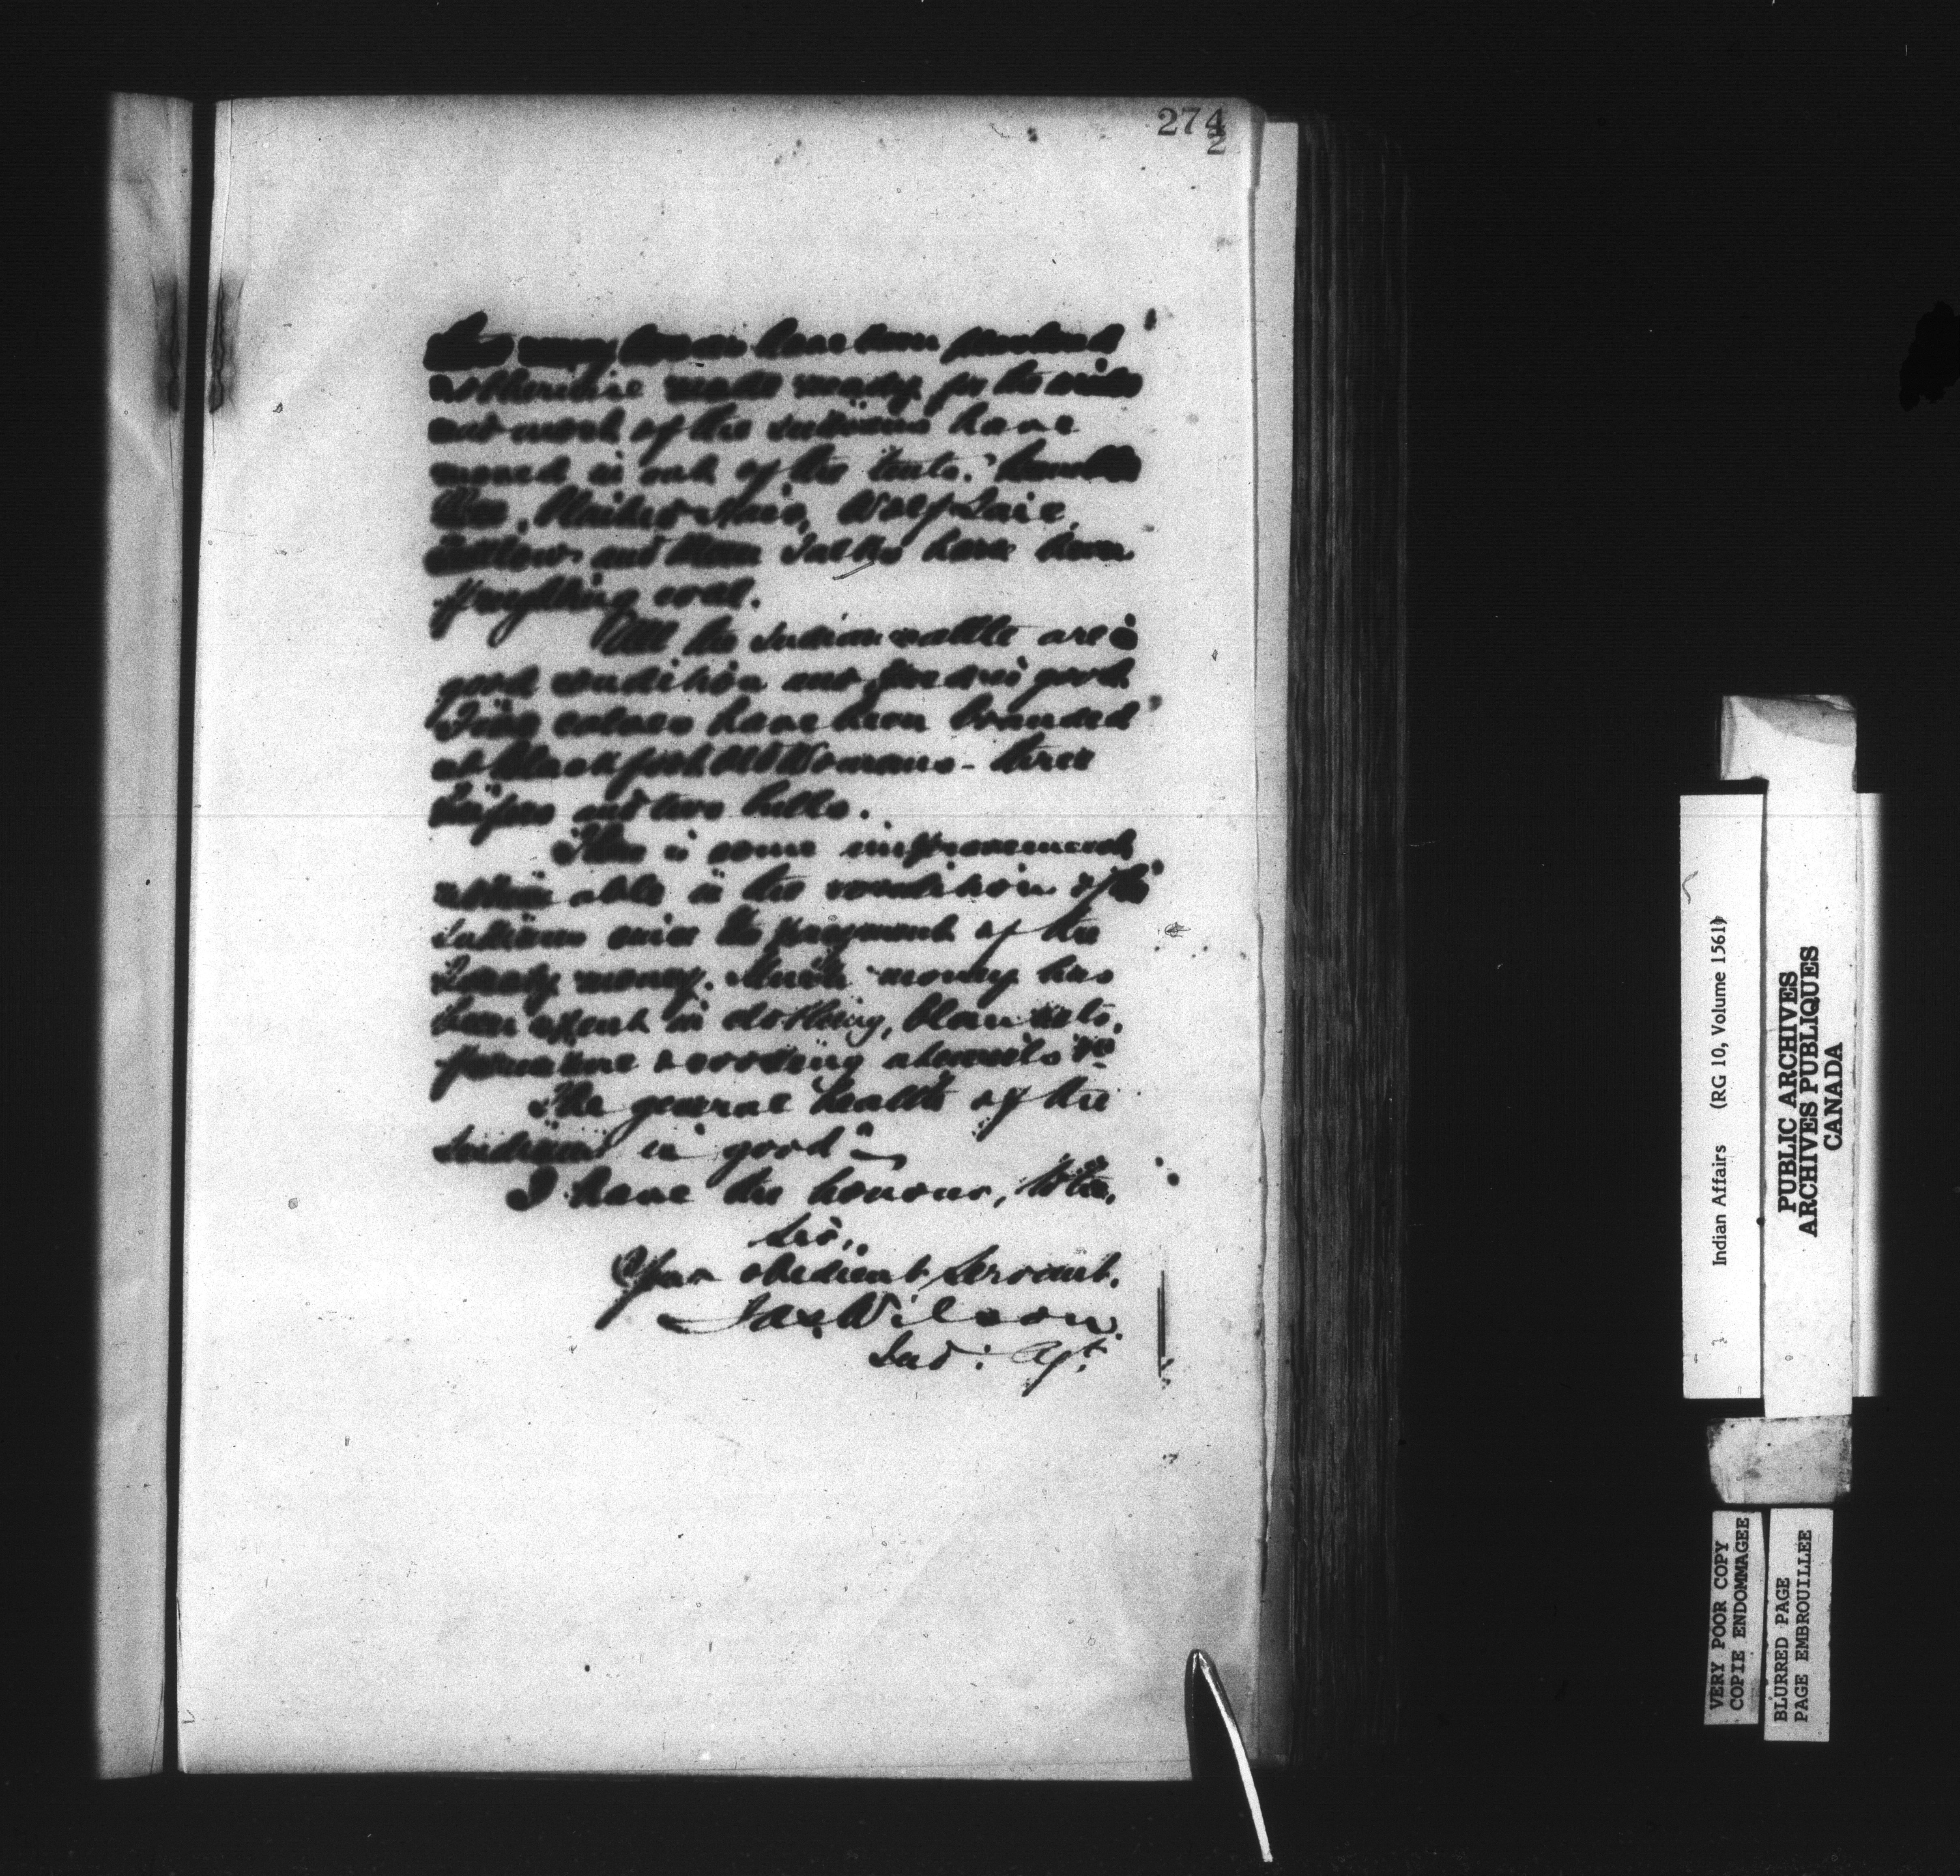 274
2
many houses have been
otherwise made ready for the winter
and most of the Indians have
moved in out of the tents.
Wolf
and have been
freighting coal.
All the Indian cattle are in
good condition and feed is good
calves have been branded
at Blackfoot Old Womans - three
heifers and two bulls.
There is some improvement
noticeable in the condition of the
Indians since the payment of the
Treaty money. Much money has
been spent in clothing, blankets,
furniture & cooking utensils
The general health of the
Indians is good
I have the honour, to be,
Sir,
Your obedient Servant,
Jas. Wilson.
Ind: Agt
Indian Affairs (RG 10, Volume 1561)
PUBLIC ARCHIVES
ARCHIVES PUBLIQUES
CANADA
VERY POOR COPY
COPIE ENDOMMAGEE
BLURRED PAGE
PAGE EMBROUILLEE